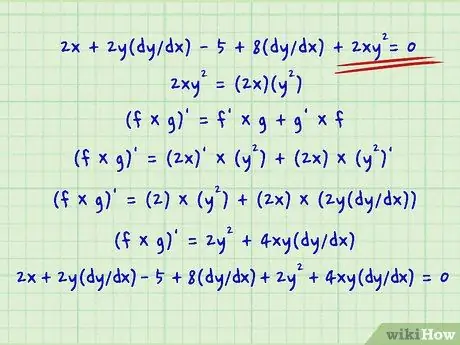 2x + 2y(dy/dx) - 5 + 8(dy/dx) + 2xy² = 0
2xy² = (2x)(y²)
(f x g)' = f' x g + g' x f
(f x g)' = (2x)' x (y²) + (2x) x (y²)'
(f x g)' = (2) x (y²) + (2x) x (2y(dy/dx))
(f x g)' = 2y² + 4xy(dy/dx)
2x + 2y(dy/dx) - 5 + 8(dy/dx) + 2y² + 4xy(dy/dx) = 0
wikiHow